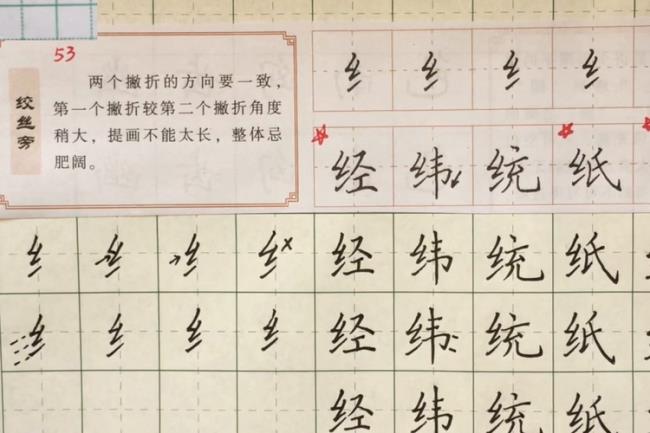 53
绞丝旁
两个撇折的方向要一致，
第一个撇折较第二个撇折角度
稍大，提画不能太长，整体忌
肥阔。
纟 纟 纟 纟
经 纬 统 纸
纟 纟 纟 纟 经 纬 统 纸
纟 纟 纟 纟 经 纬 统 纸
经 纬 统 纸